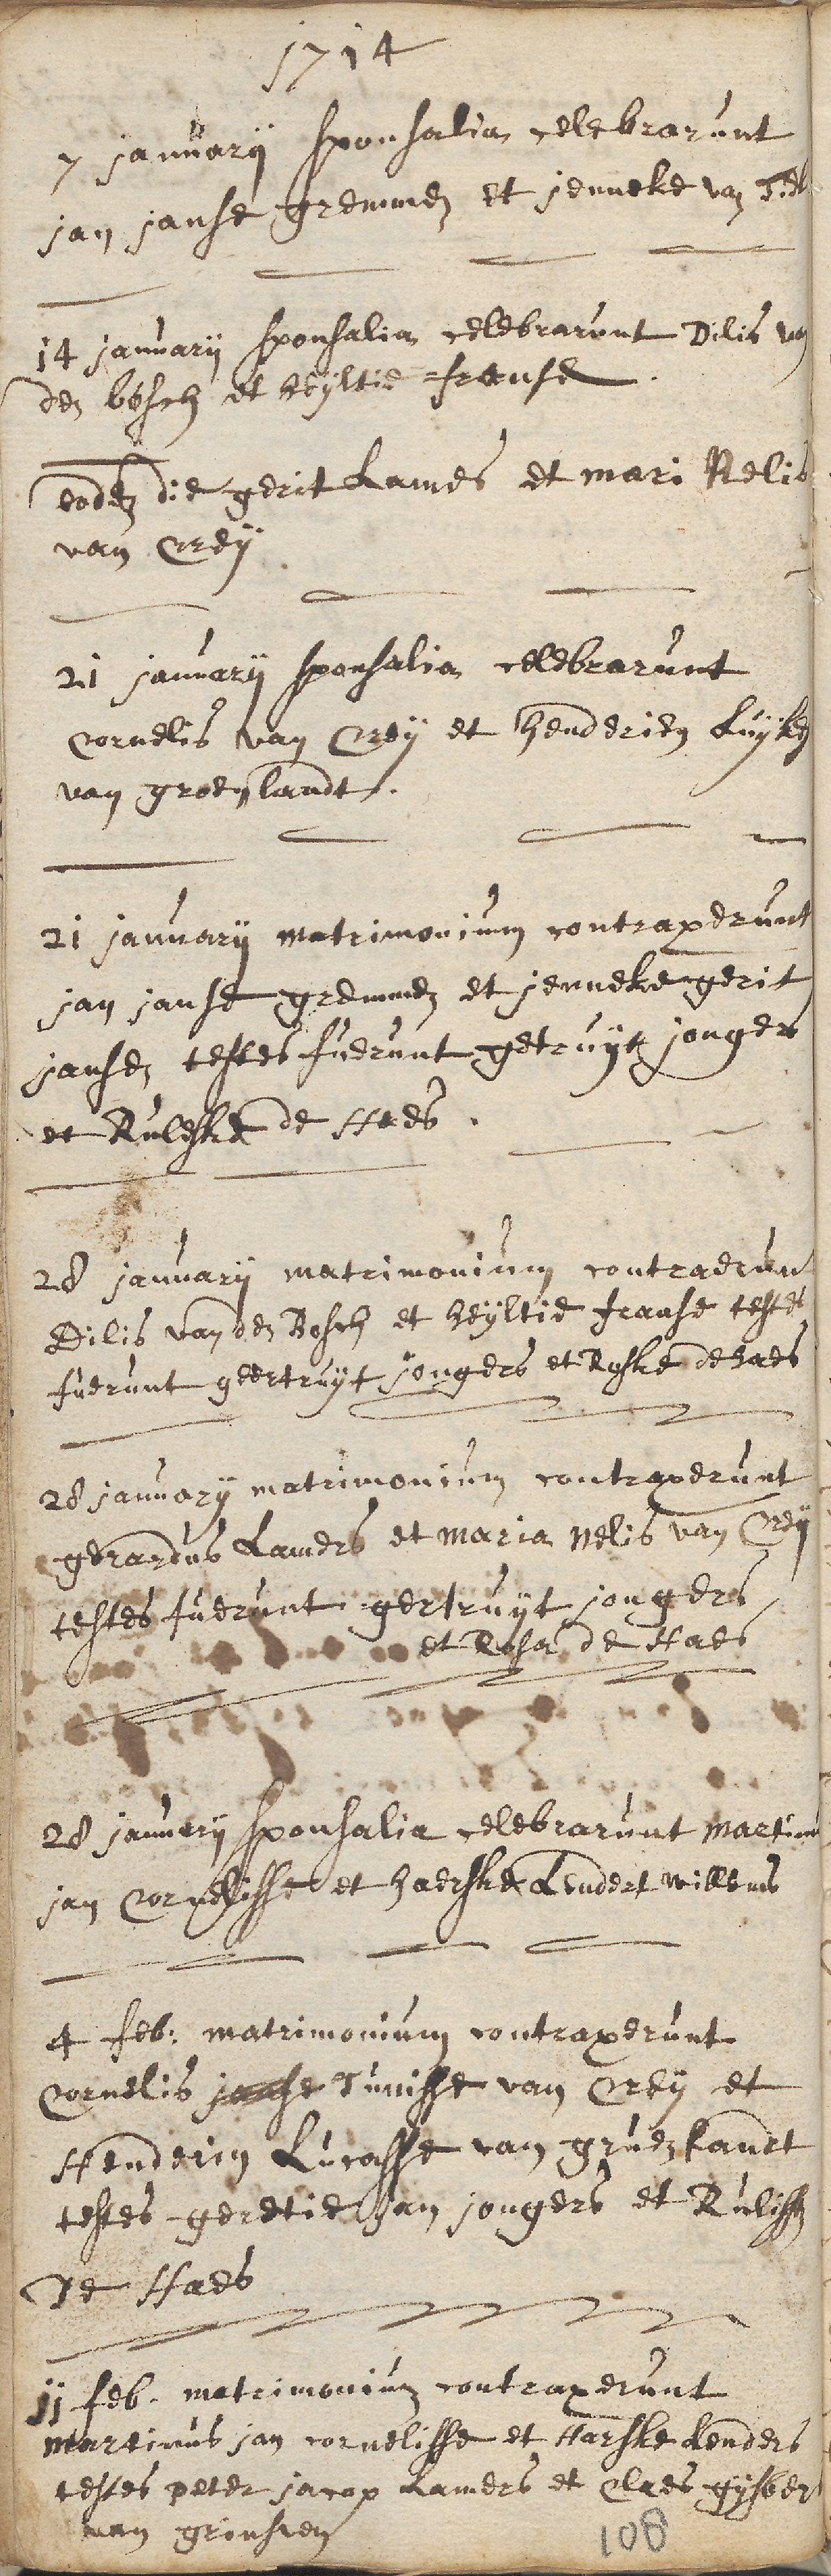 1714
7 januarij sponsalia celebrarunt
jan janse gremmen et jenneke van
14 januarij sponsalia celebrarunt Dilis van
den bosch et heijltie franse.
eoden die gerit Lamers et mari Nelis
van Creij
21 januarij sponsalia celebrarunt
cornelis van Creij et henderien Luijken
van groenlandt.
21 januarij matrimonium contraxerunt
jan janse gremmen et jenneke gerit
jansen testes fuerunt getruijt jongers
etRuleske de Haes.
28 januarij matrimonium contraerunt
Dilis van den Bosch et heijltie franse testes
fuerunt geertruijt jongers et Roske de haes
28 januarij matrimonium contraxerunt
gerardus Lamers et maria Nelis van Creij
testes fuerunt gertruijt jongers
et Rosa de Haes
28 januarij sponsalia celebrarunt martinus
jan Cornelisse et haerske Lendert willems
4 feb: matrimonium contraxerunt
Cornelis janse Tunisse van Creij et
Henderin Lucasse van gruenlandt
testes geretie jan jongers et Rulissken
De Haes
11 feb. matrimonium contraxerunt
martinus jan cornelisse et Harske Lenders
testes peter jacop Lamers et Claes gijsbers
van grinsven
108